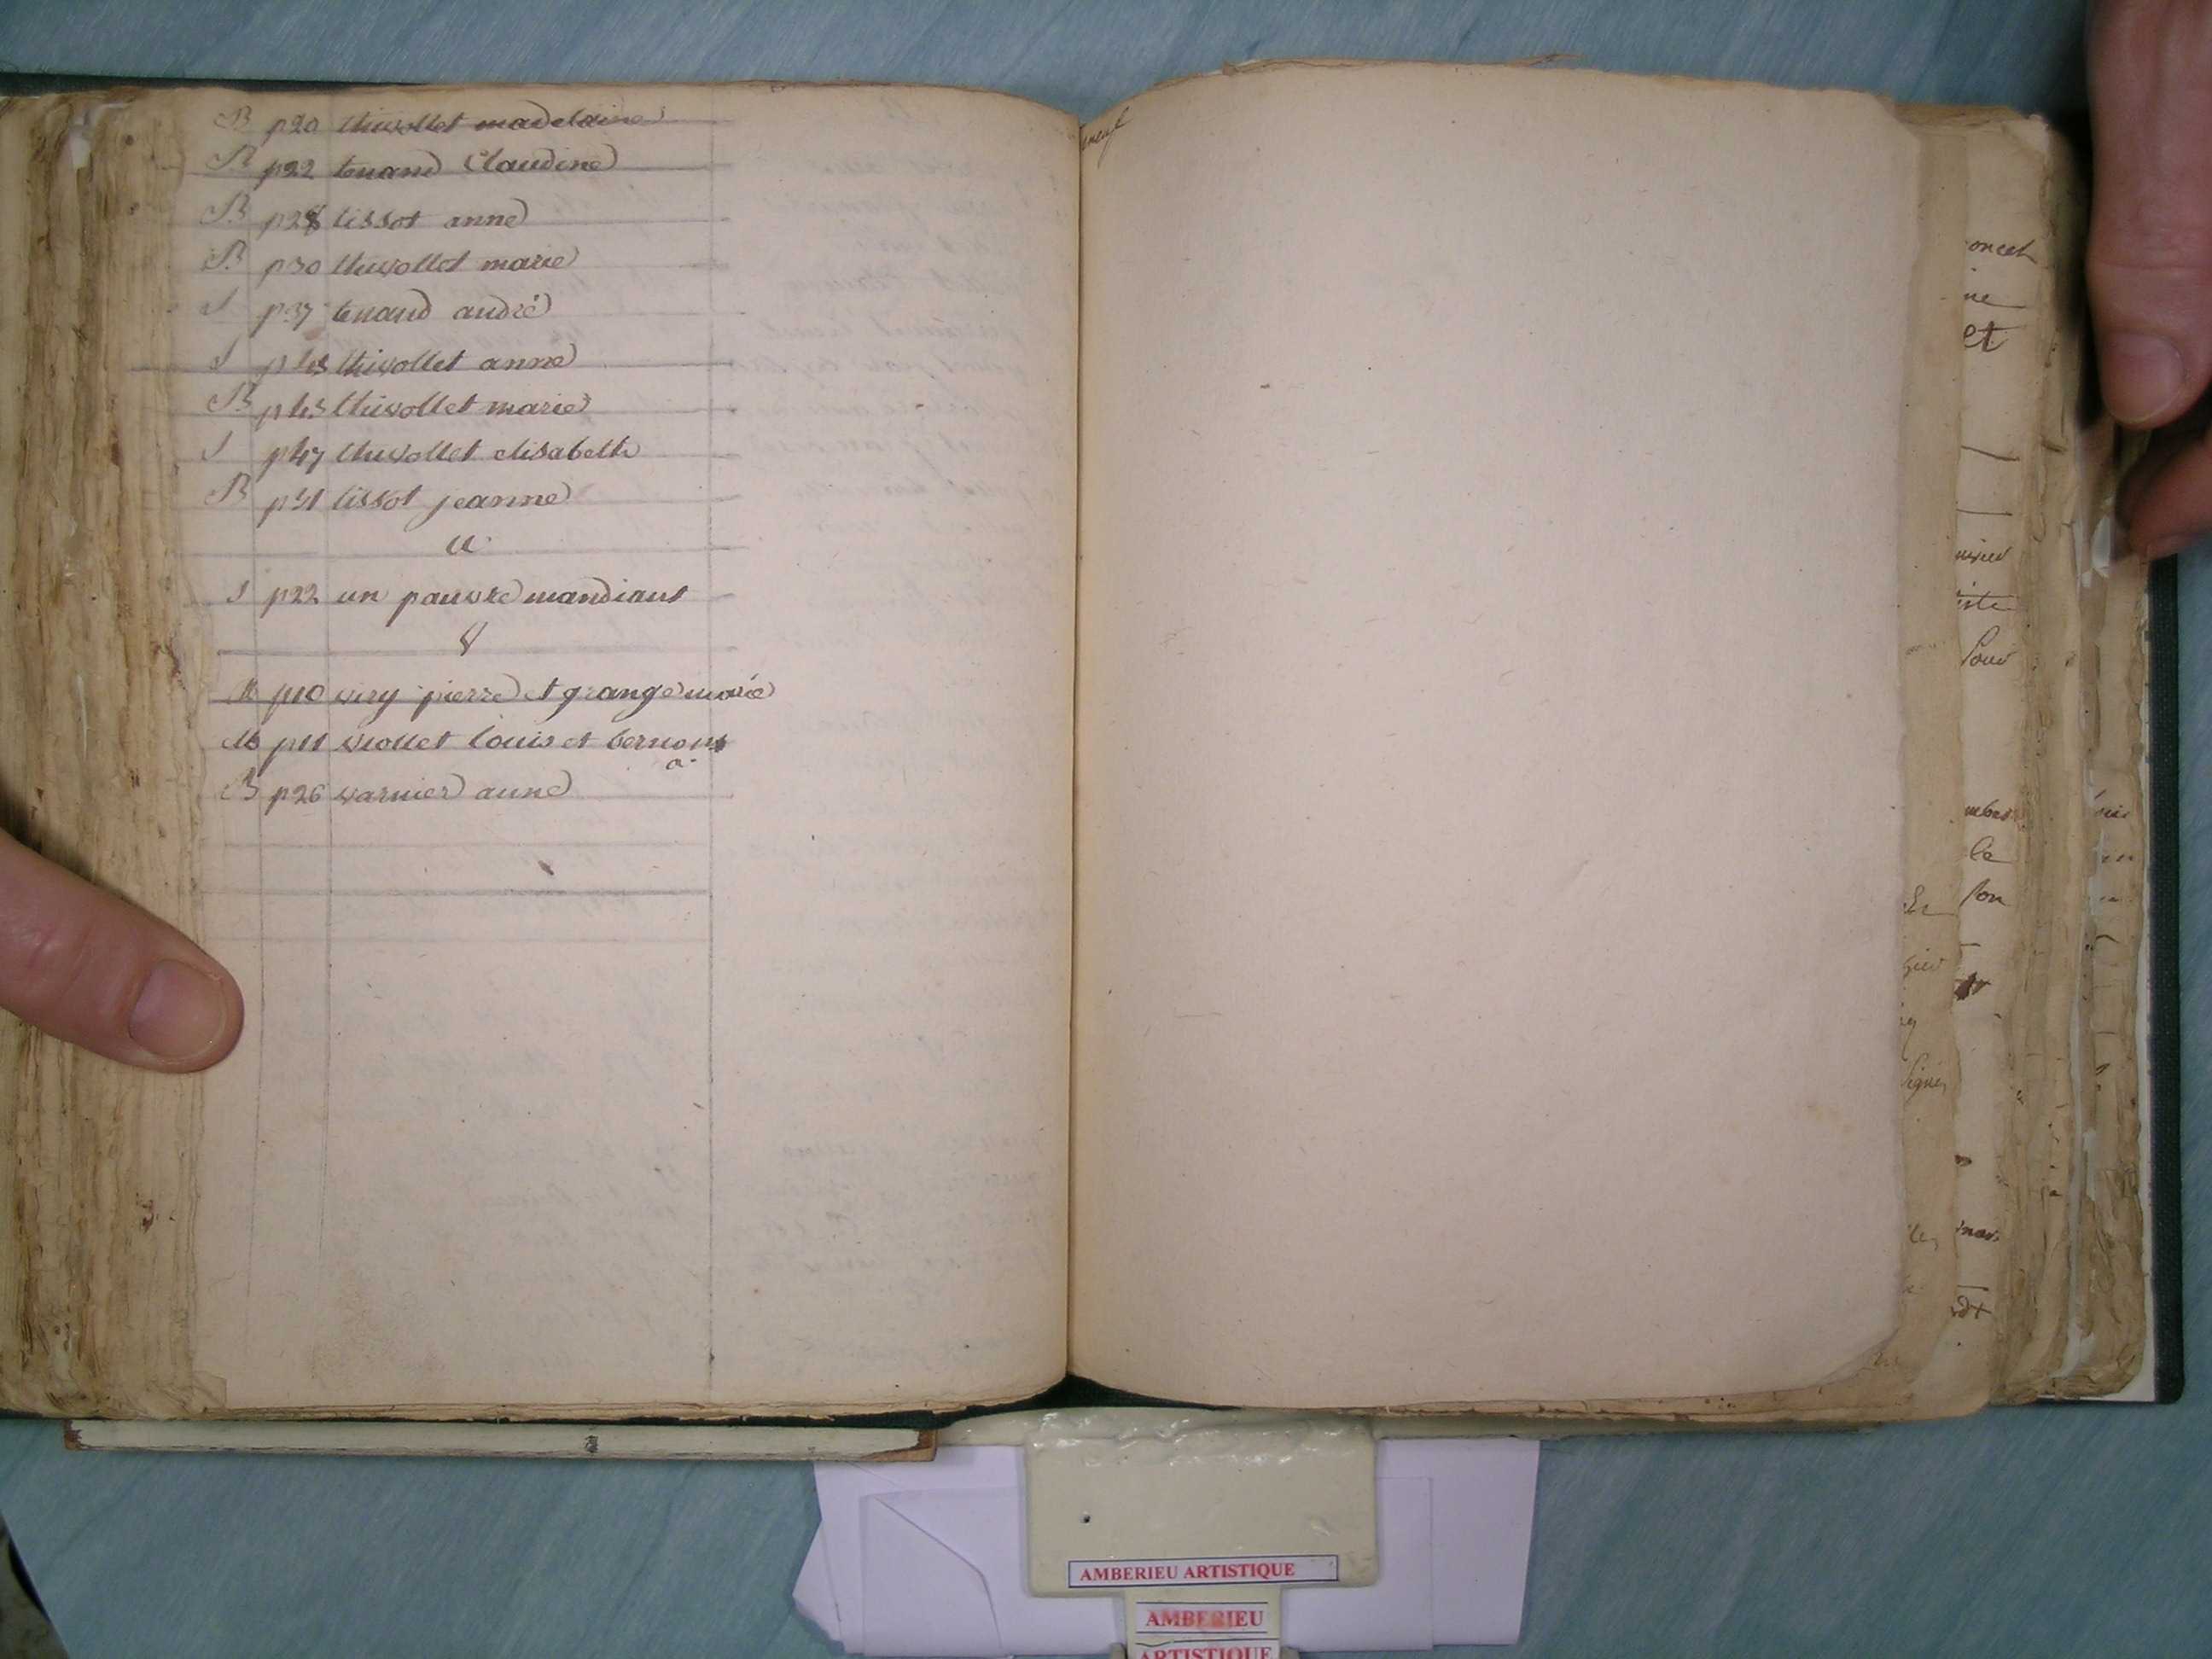 B p20 thivollet madelaine
B p22 tenand Claudine
B p28 tissot anne
B p30 thivollet marie
S p37 tenand andré
S p43 thivollet anne
B p45 thivollet marie
S p47 thivollet elisabeth
B p51 tissot jeanne
u
S p22 un pauvre mandiant
V
M p10 very pierre et grange marie
M p11 viollet louis et bernont
a.
B p26 varnier anne
oncet
ne
et
iste
Pour
le
son
signé
mar
AMBERIEU ARTISTIQUE
AMBERIEU
ARTISTIQUE